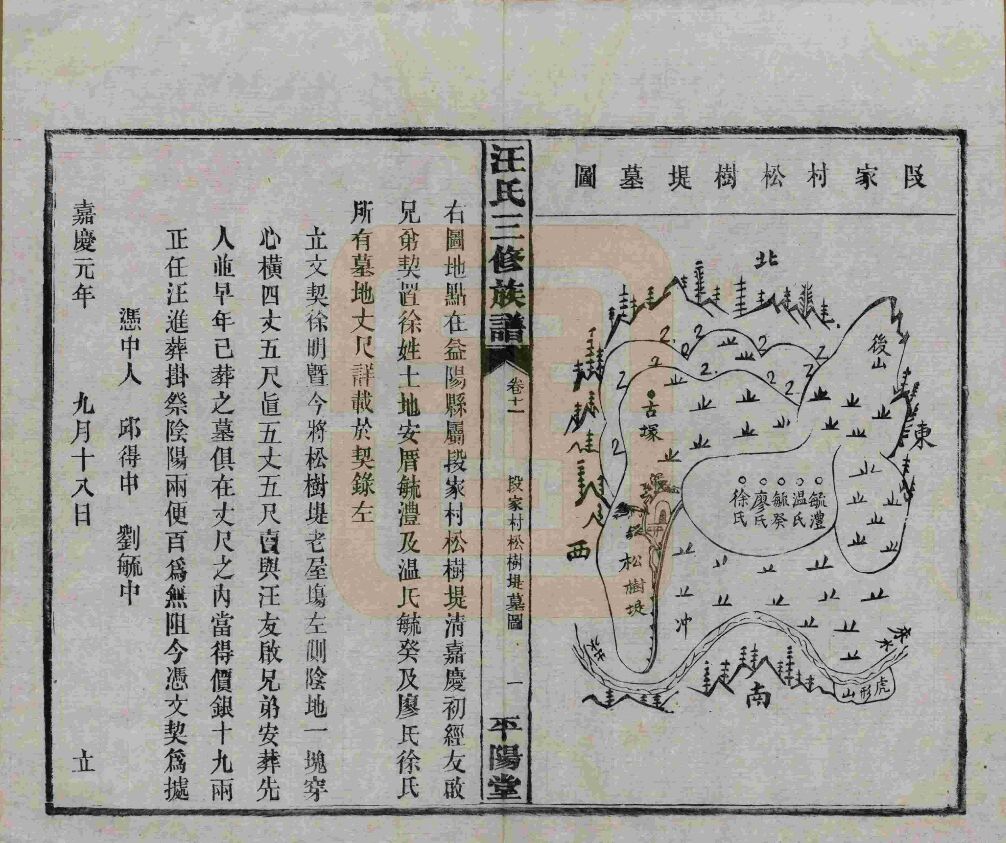 段家村松樹堤墓圖
北
後山
東
古塚
毓澧
温氏
毓癸
廖氏
徐氏
西
松樹堤
沖
來水
虎形山
南
汪氏三修族譜
卷十一
段家村松樹堤墓圖
一
平陽堂
右圖地點在益陽縣屬段家村松樹堤清嘉慶初經友啟
兄弟契置徐姓土地安厝毓澧及温氏毓癸及廖氏徐氏
所有墓地丈尺詳載於契錄左
立文契徐明暨今將松樹堤老屋塲左側陰地一塊穿
心橫四丈五尺直五丈五尺賣與汪友啟兄弟安葬先
人並早年己葬之墓俱在丈尺之內當得價銀十九兩
正任汪進葬掛祭陰陽兩便百爲無阻今憑文契爲據
憑中人 邱得申 劉毓中
嘉慶元年 九月十八日 立